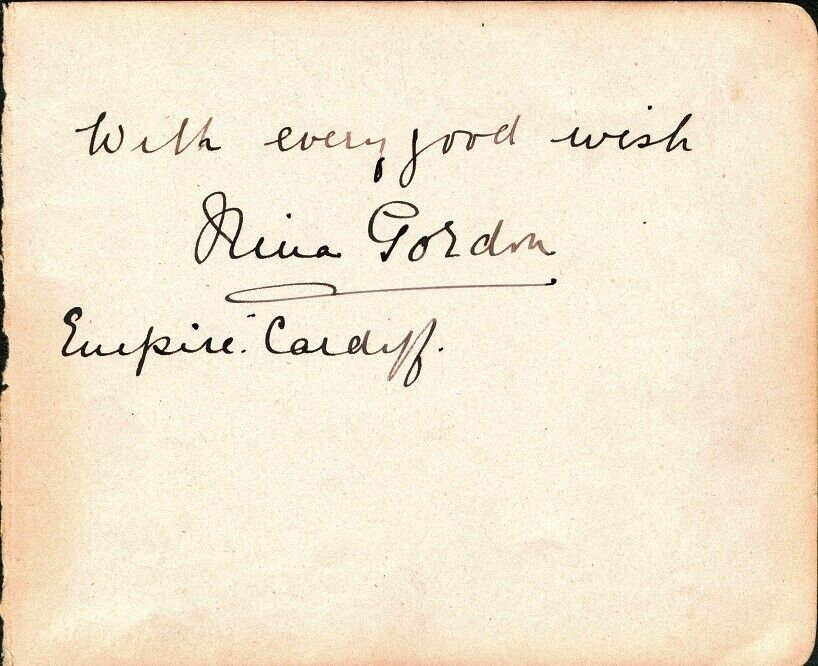 With every good wish
Nina Gordon
Empire. Cardiff.